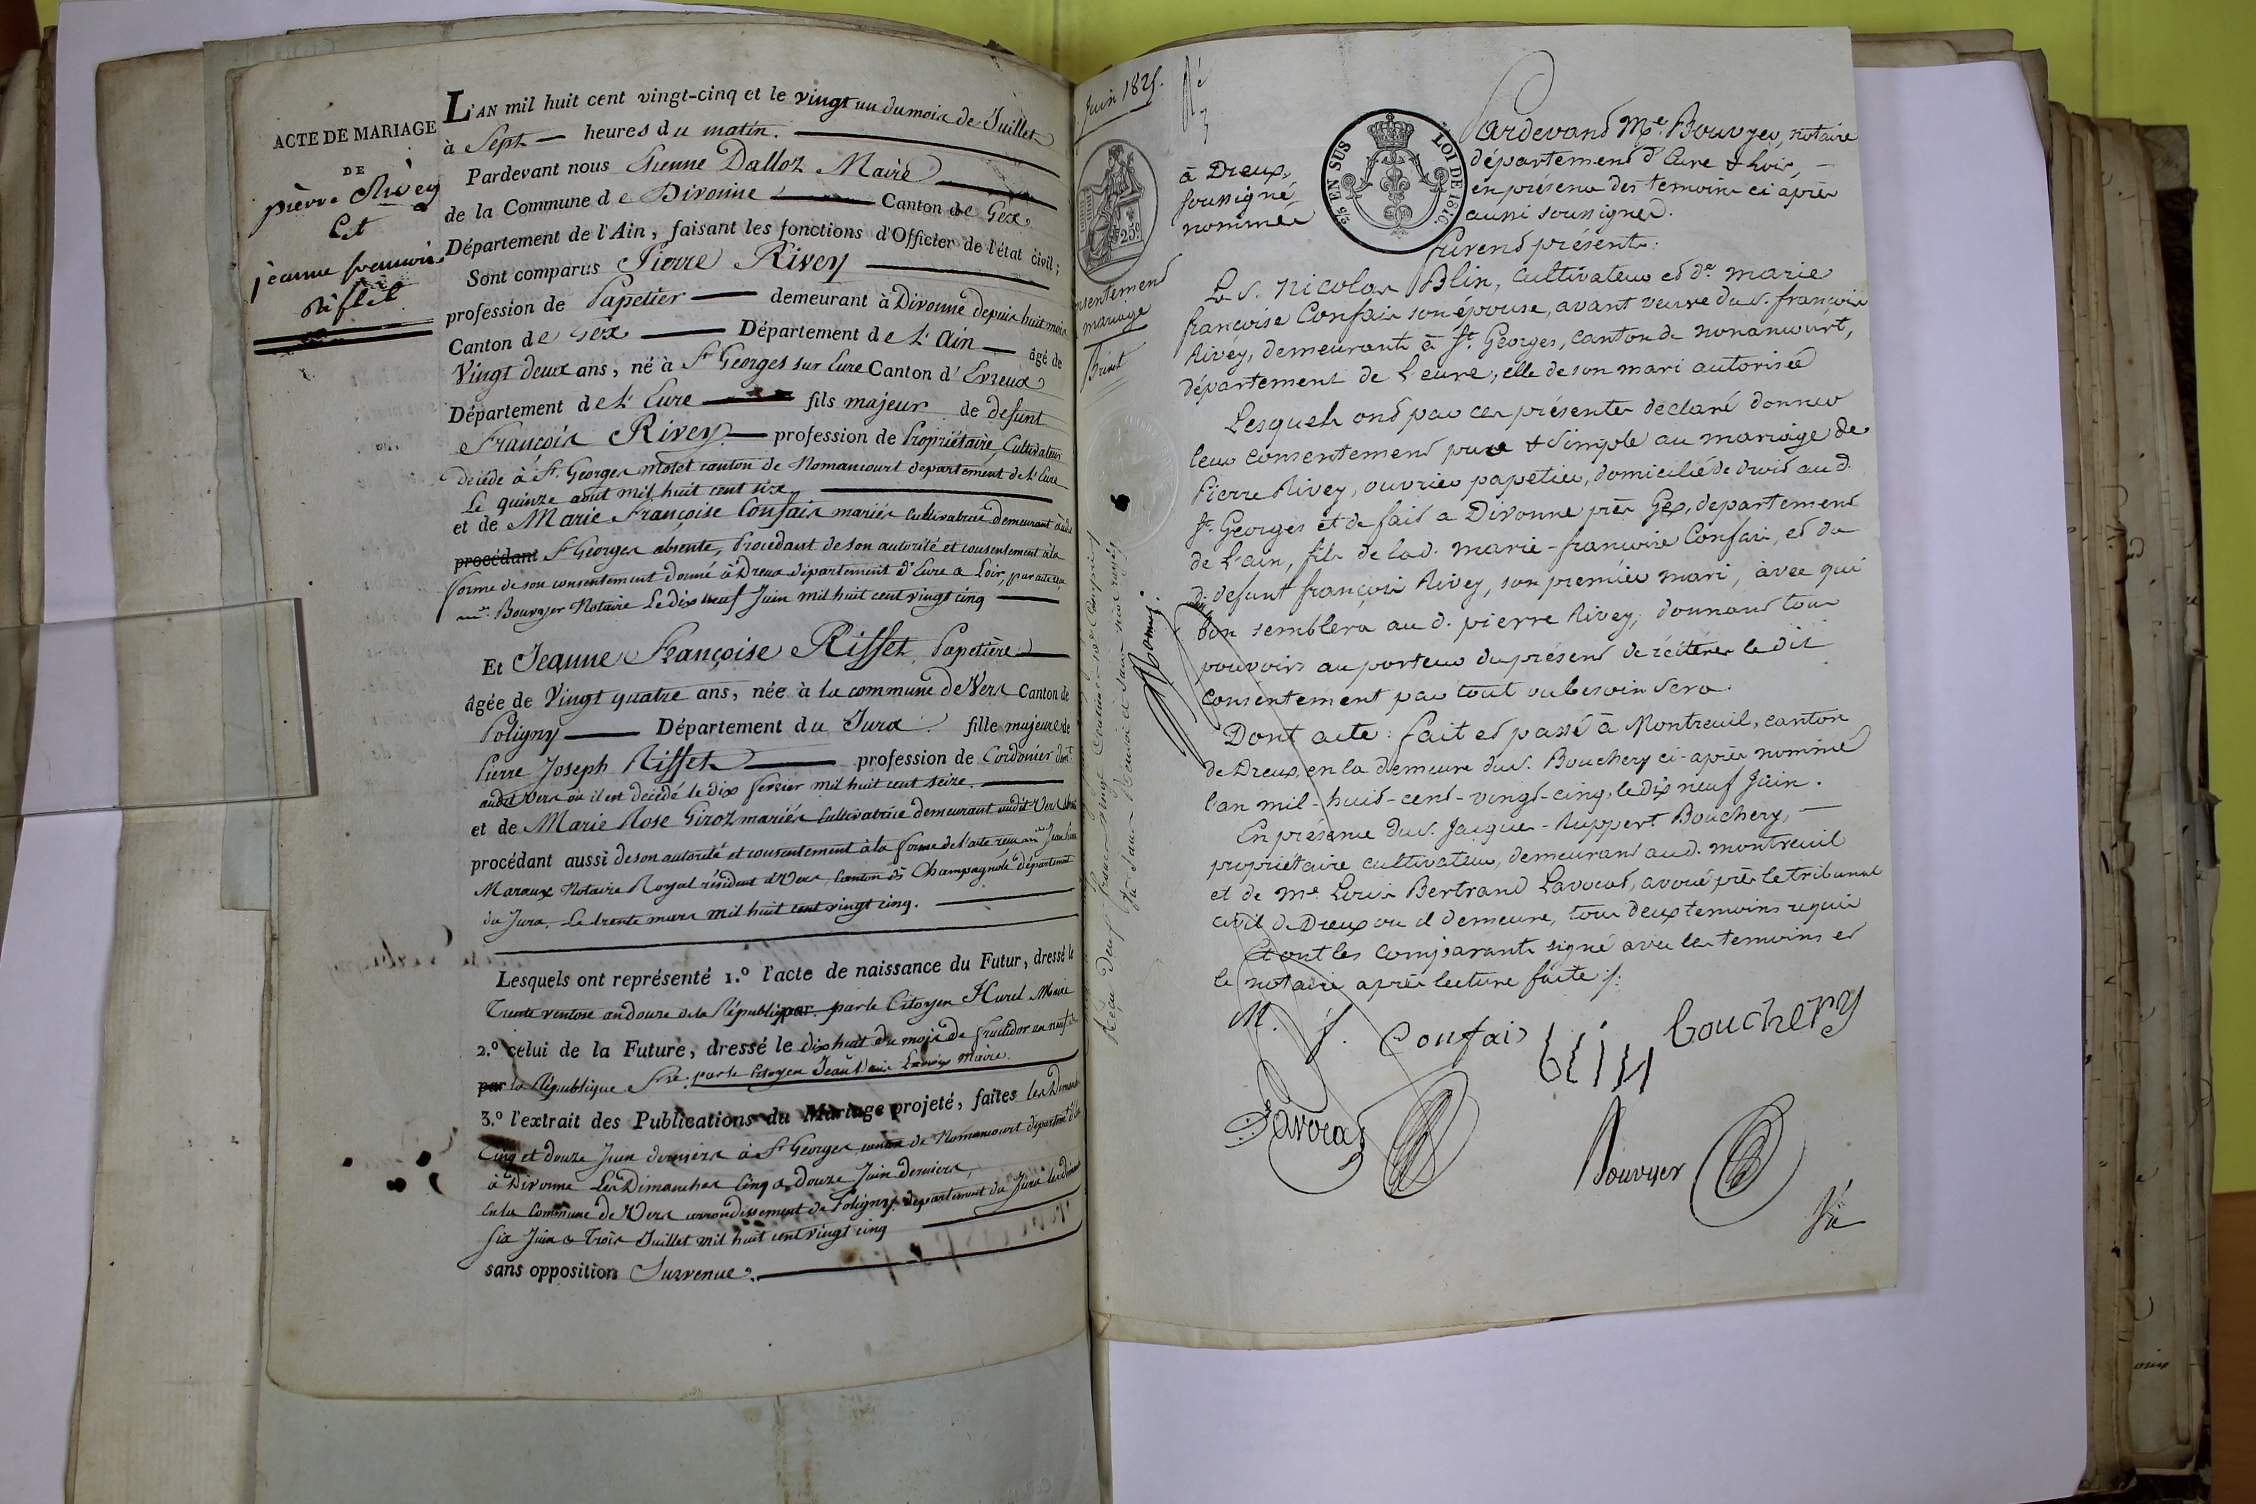 ACTE DE MARIAGE
DE
pierre Rivey
Et
jeanne francoise
Riflet
L'AN mil huit cent vingt-cinq et le vingt un du mois de Juillet
à Sept heures du matin.
Pardevant nous Etienne Dalloz Maire
de la Commune de Divonne Canton de Gex
Département de l'Ain, faisant les fonctions d'Officier de l'état civil;
Sont comparus Pierre Rivey
profession de Papetier demeurant à Divonne depuis huit mois
Canton de Gex Département de L'Ain âgé de
Vingt deux ans, né à St Georges sur Eure Canton d'Evreux
Département de L'Eure fils majeur de defunt
François Rivey profession de Propriétaire Cultivateur
décédé à St Georges motet canton de Nomancourt departement de L'Eure
Le quinze août mil huit cent six
et de Marie Françoise Confais mariés Cultivatrice demeurant audit
procédant St Georges absente, Procedant de son autorité et consentement à la
forme de son consentement donné à Dreux département d'Eure & Loir, par acte
me Bouvyer Notaire Le dix neuf Juin mil huit cent vingt cinq
Et Jeanne Françoise Rifflet, Papetière
âgée de Vingt quatre ans, née à la commune de Vers Canton de
Poligny Département du Jura fille majeure de
Pierre Joseph Rifflet profession de Cordonier
audit Vers où il est décédé le dix fevrier mil huit cent seize.
et de Marie Rose Giroz mariés Cultivatrice demeurant audit Vers
procédant aussi de son autorité et consentement à la forme de l'acte recu me Jean
Maraux Notaire Royal résident à Vers, Canton de Champagnole département
du Jura. Le trente mars mil huit cent vingt cinq.
Lesquels ont représenté 1.º l'acte de naissance du Futur, dressé le
Trente ventose an douze de la République par par le Citoyen Hurel Maire
2.º celui de la Future, dressé le dix huit du mois de fructidor an neuf de
par la République par le Citoyen Jean maire.
3.º l'extrait des Publications du Mariage projeté, faites les Dimanches
Cinq et douze Juin derniers à St Georges canton de Nomancourt département
à Divonne Les Dimanches Cinq & douze Juin derniers,
En la Commune de Vers arrondissement de Poligny département du Jura les
six Juin & Trois Juillet mil huit cent vingt cinq
sans opposition Survenue.
Juin 1825.
25c
mariage
2/5 EN SUS LOI DE 1816.
Pardevant Me. Bouvyer, notaire
à Dreux, département d'Eure & Loir,
soussigné, en présence des temoins ci après
nommés aussi soussignés.
furent présents:
Le S. Nicolas Blin, Cultivateur et De. marie
françoise Confais son épouse, avant veuve du S. françois
Rivéy, demeurants à St. Georges, canton de nonancourt,
département de L'eure, elle de son mari autorisée
Lesquels ont par ces présentes declaré donner
leur consentement pur & simple au mariage de
Pierre Rivey, ouvrier papetier, domicilié de droit au d.
St. Georges et de fait a Divonne près Gex, departement
de L'ain, fils de lad. marie-francoise Confais, et du
d. defunt françois Rivey, son premier mari, avec qui
bon semblera au d. pierre Rivey; donnant tous
pouvoirs au porteur du présent de réitérer le dit
Consentement par tout ou besoin sera.
Dont acte: fait et passé à Montreuil, canton
de Dreux, en la demeure du S. Bouchery ci-après nommé
l'an mil-huit-cent-vingt-cinq, le dix neuf Juin.
En présence du S. Jacques-Ruppert Bouchery,
propriétaire cultivateur, demeurant aud. montreuil
et de Me. Louis Bertrand Lavocat, avoué près le tribunal
civil de Dreux ou il demeure, tous deux temoins requis
Et ont les comparants signé avec les temoins et
le notaire après lecture faite ./.
M. f. Confais blin bouchery
Lavocat
Bouvyer